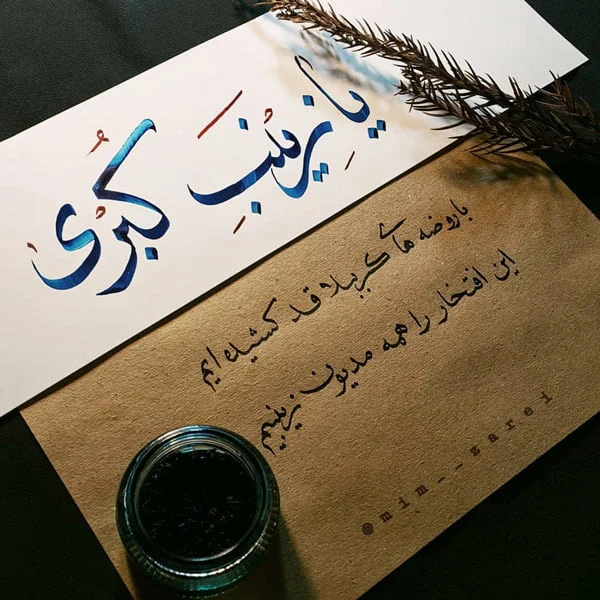 یا زینب کبری
با روضه های کربلا قد کشیده ایم
این افتخار را همه مدیون زینبیم
@mim__zarei